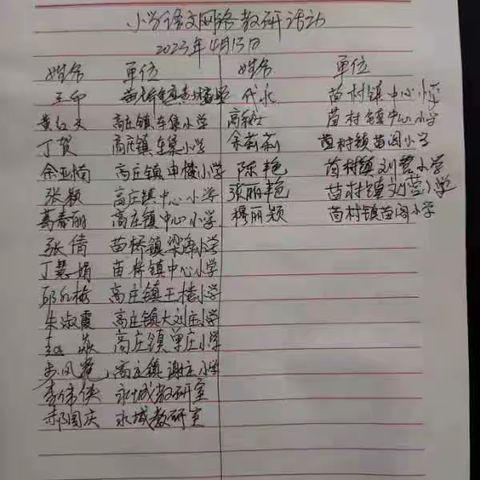 小学语文网络教研活动
2023年4月13日
姓名 单位 姓名 单位
王印 苗桥镇 小学 代永 苗村镇中心小学
黄红义 高庄镇车集小学 高 苗村镇中心小学
丁贺 高庄镇车集小学 余莉莉 苗村镇苗阁小学
余亚楠 高庄镇申楼小学 陈艳 苗村镇刘 小学
张颖 高庄镇中心小学 张丽艳 苗村镇刘 小学
葛春丽 高庄镇中心小学 穆丽颖 苗村镇苗阁小学
张倩 苗桥镇梁庙小学
丁慧娟 苗桥镇中心小学
邱 梅 高庄镇王楼小学
朱淑霞 高庄镇大刘庄小学
高庄镇单庄小学
高庄镇谢庄小学
李伟侠 永城教研室
郝国庆 永城教研室